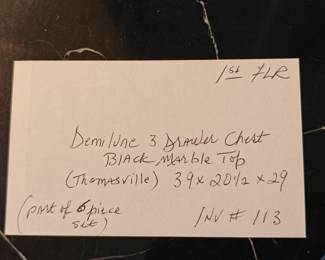 1st FLR
Demilune 3 Drawer Chest
Black Marble Top
(Thomasville) 39 x 20 1/2 x 29
(part of 6 piece
set)
INV # 113